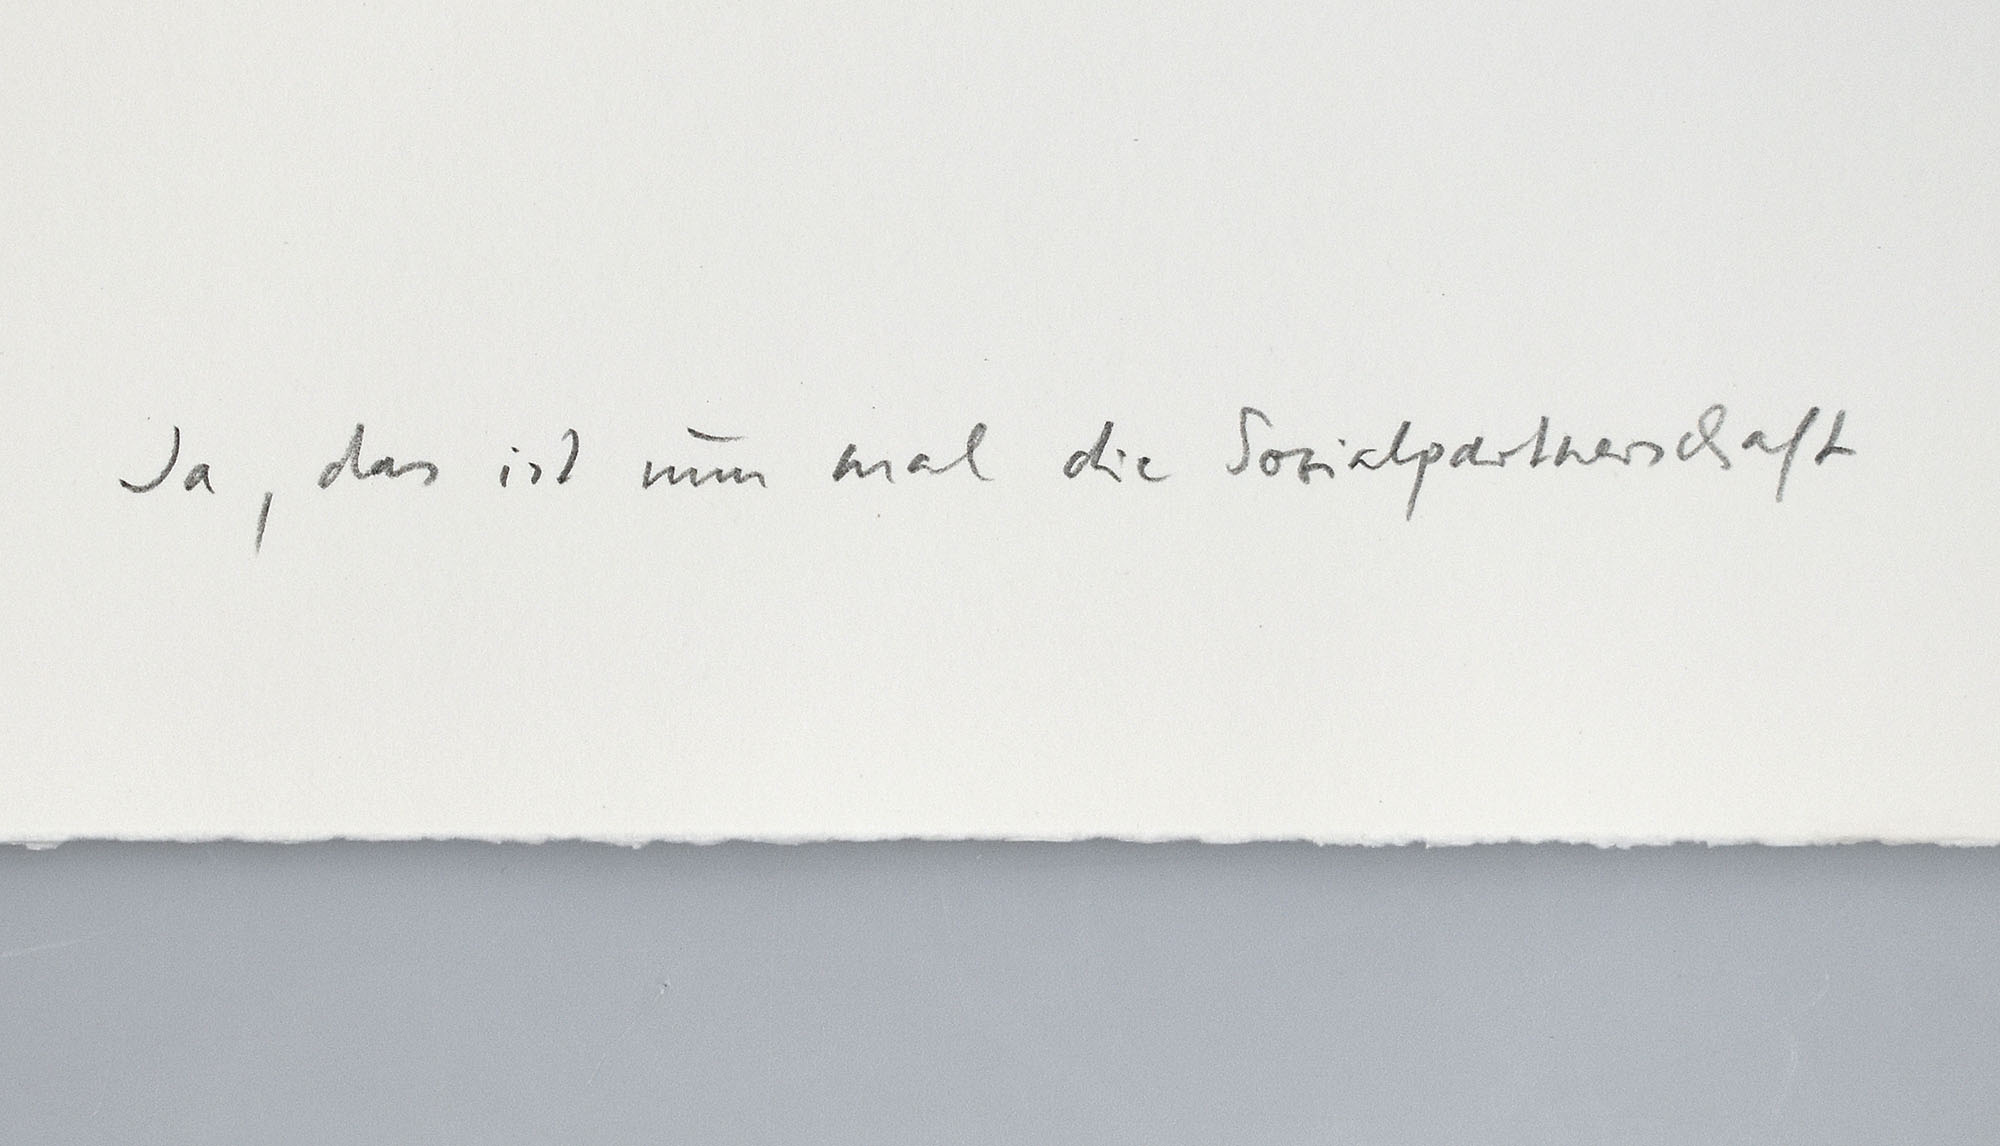 Ja, das ist nun mal die Sozialpartnerschaft